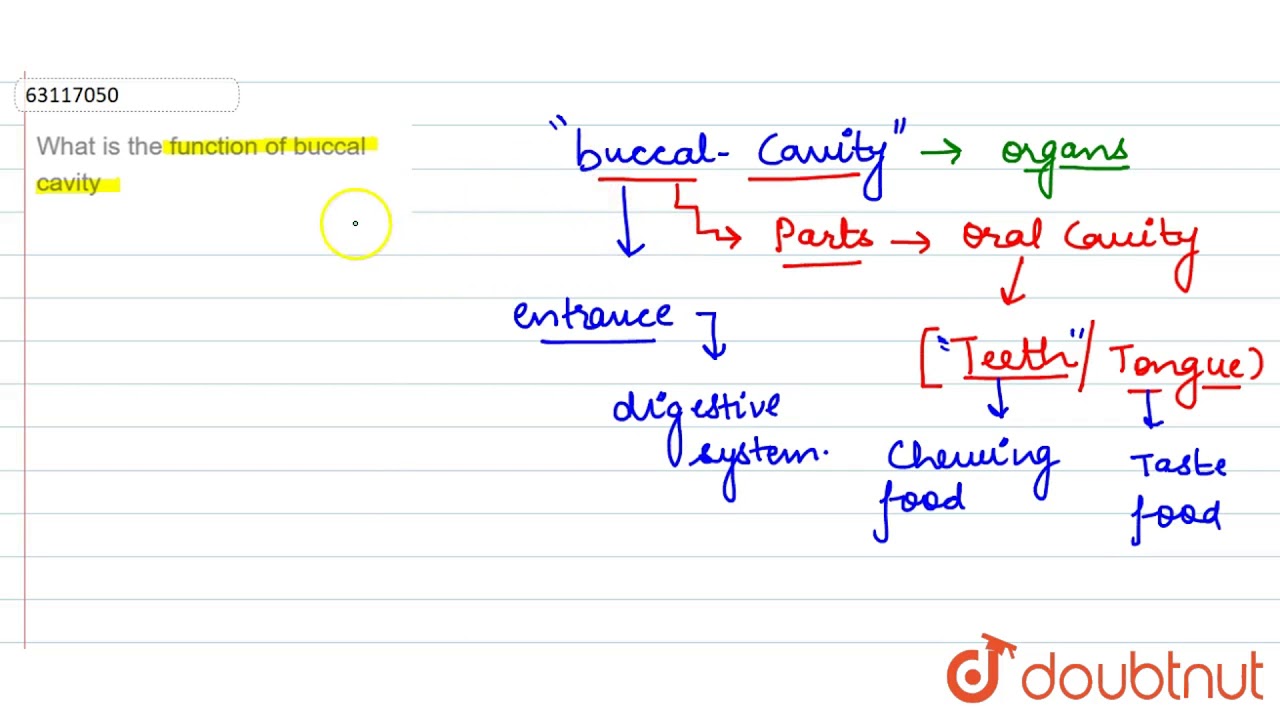 63117050
What is the function of buccal
cavity
"buccal- Cavity" → organs
Parts → oral Cavity
entrance
["Teeth"/ Tongue)
digestive
system.
Chewing
food
Taste
food
doubtnut